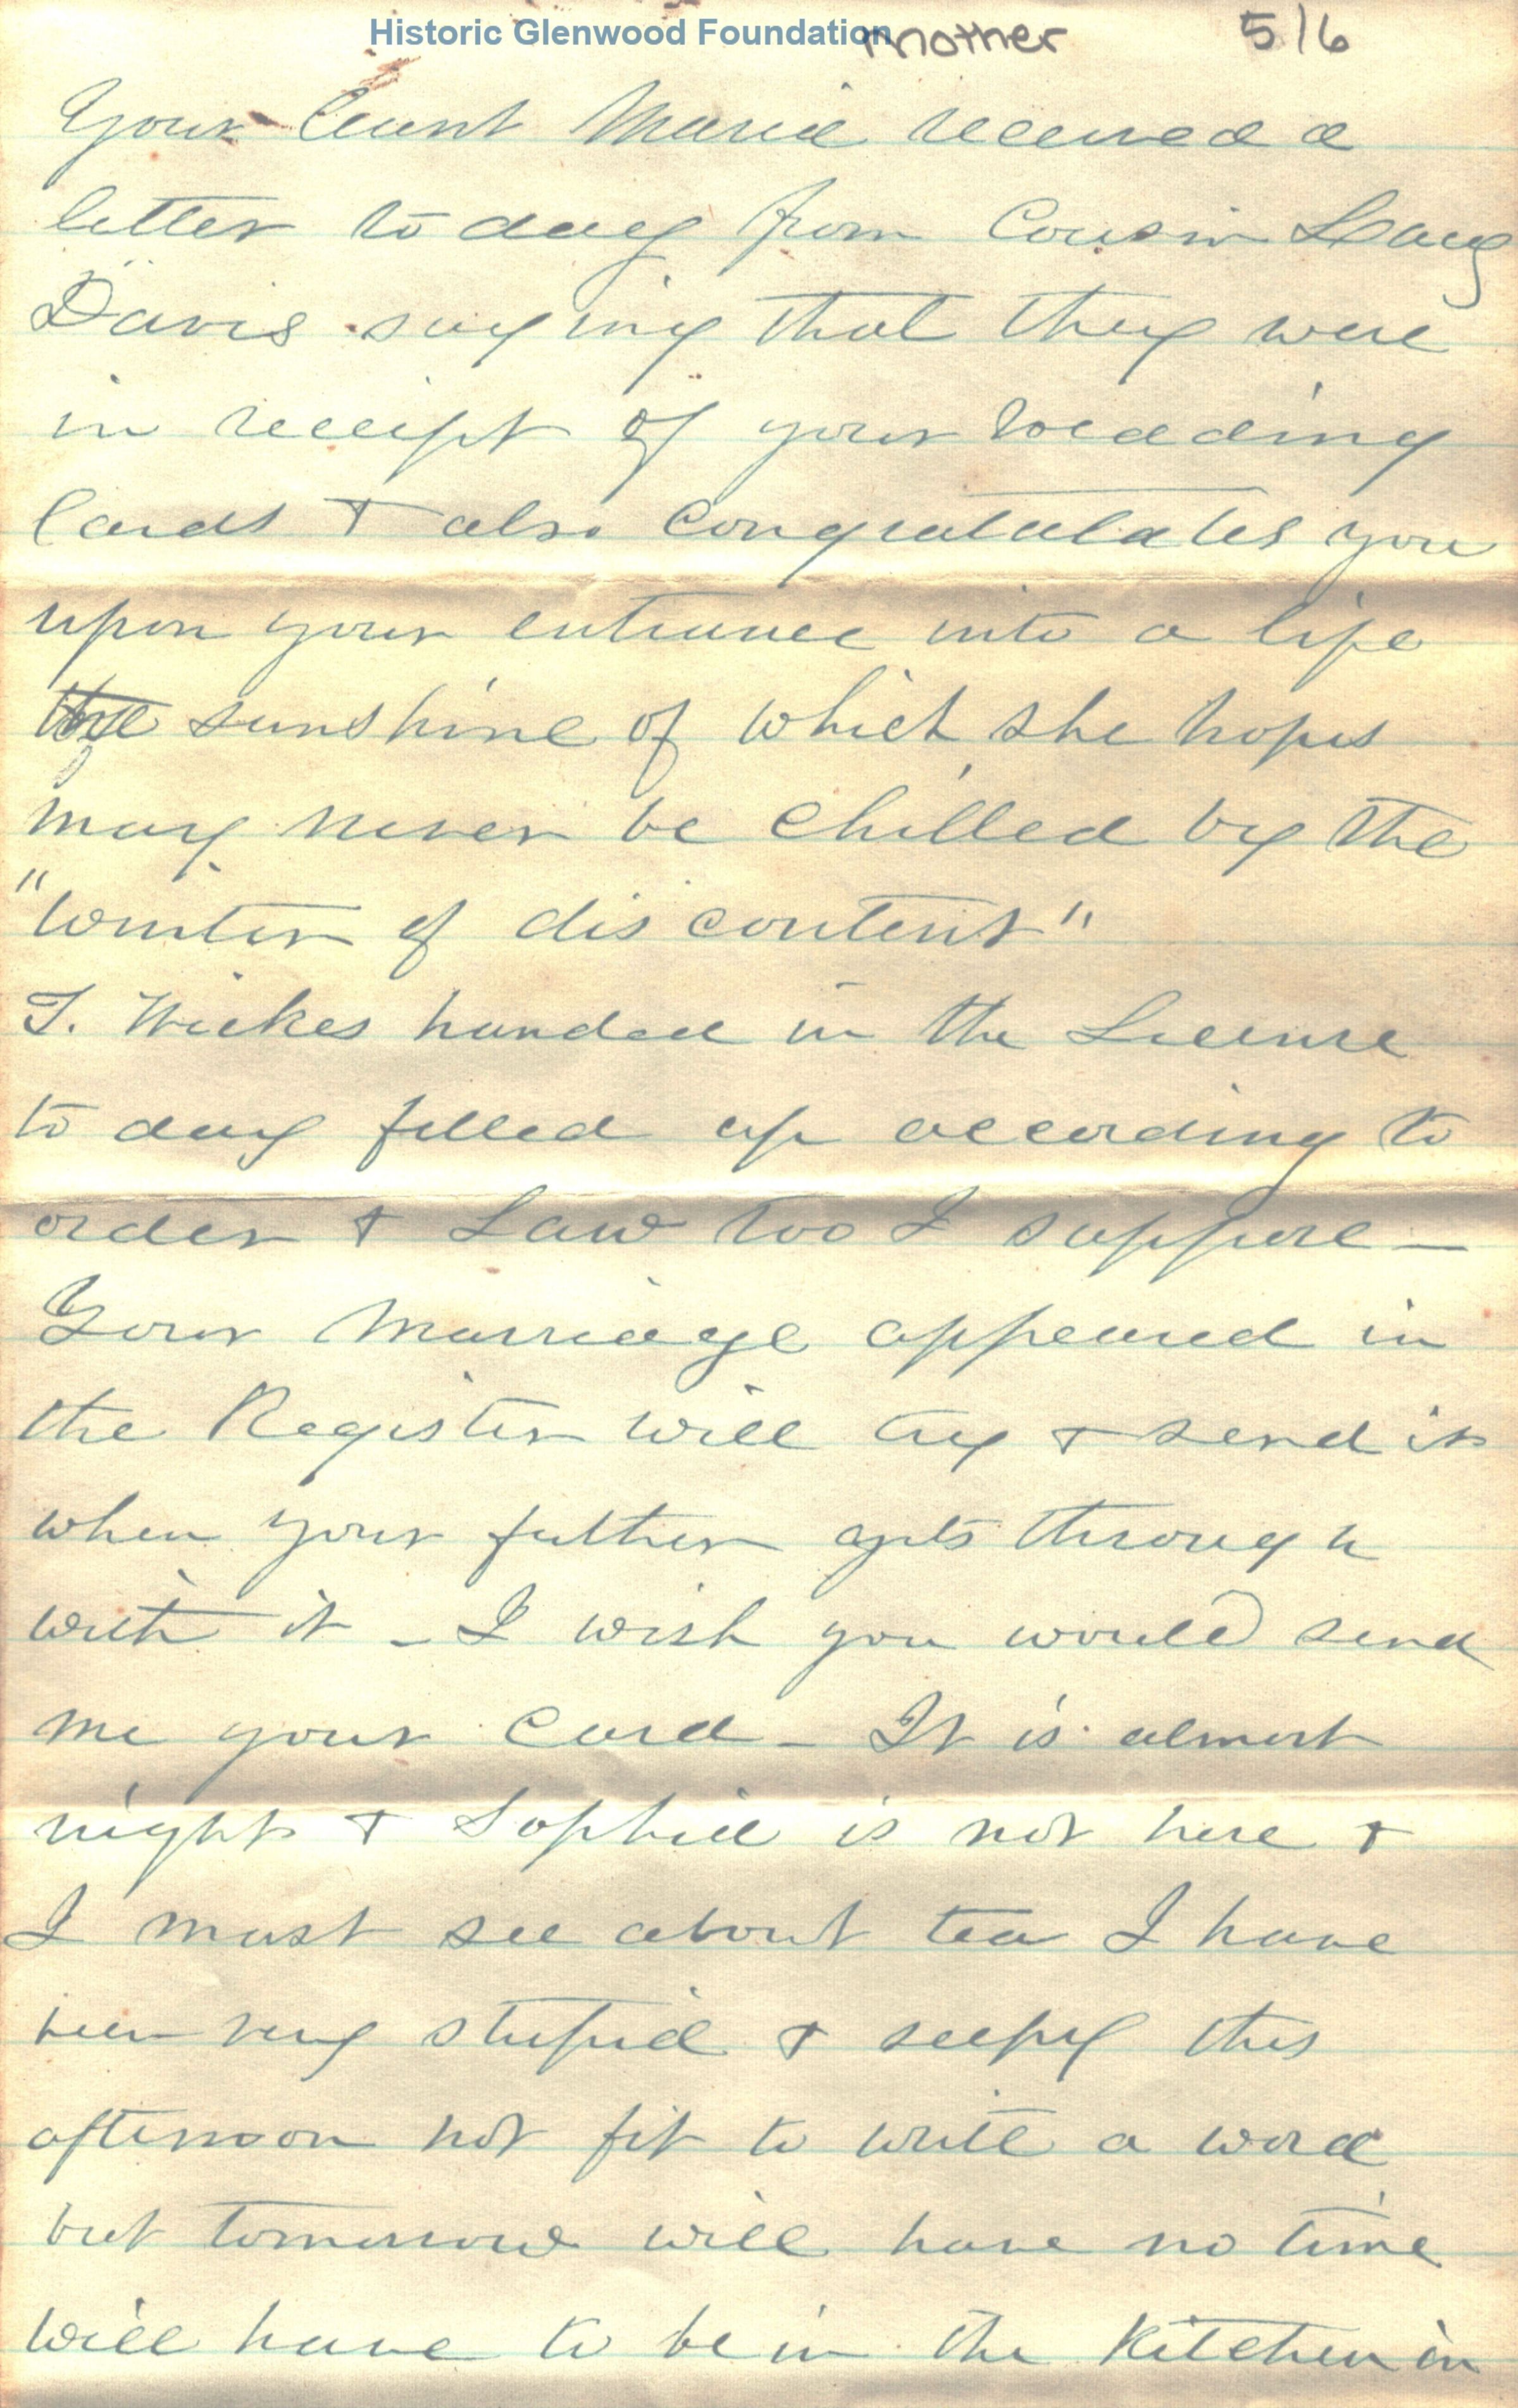 Historic Glenwood Foundation
mother 5/6
Your Aunt Maria received a
letter to day from Cousin
Davis saying that they were
in receipt of your wedding
Cards + also Congratulates you
upon your entrance into a life
the sunshine of which she hopes
may never be chilled by the
"Winter of dis content"
T. Wickes handed in the License
to day filled up according to
order + Law too I suppose —
Your Marriage appeared in
the Register will try + send it
when your father gets through
with it — I wish you would send
me your Card — It is almost
night + Sophie is not here +
I must see about tea I have
been very stupid + seepy this
afternoon not fit to write a word
but tomorrow will have no time
will have to be in the Kitchen in